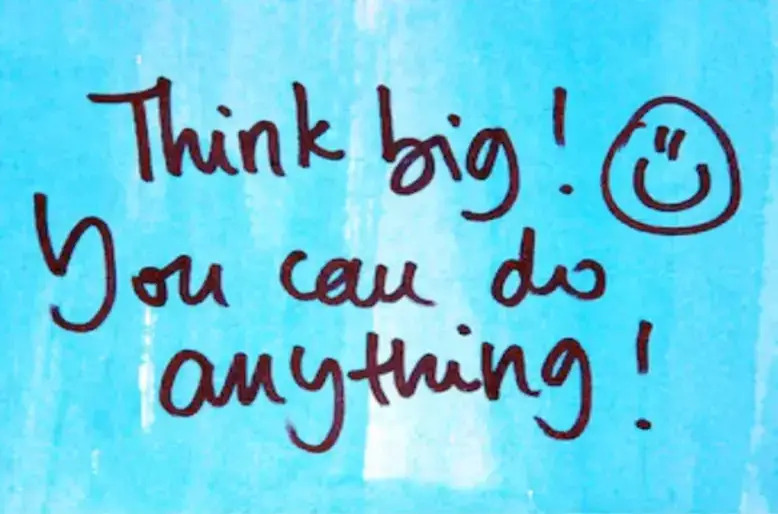 Think big!
You can do
anything!